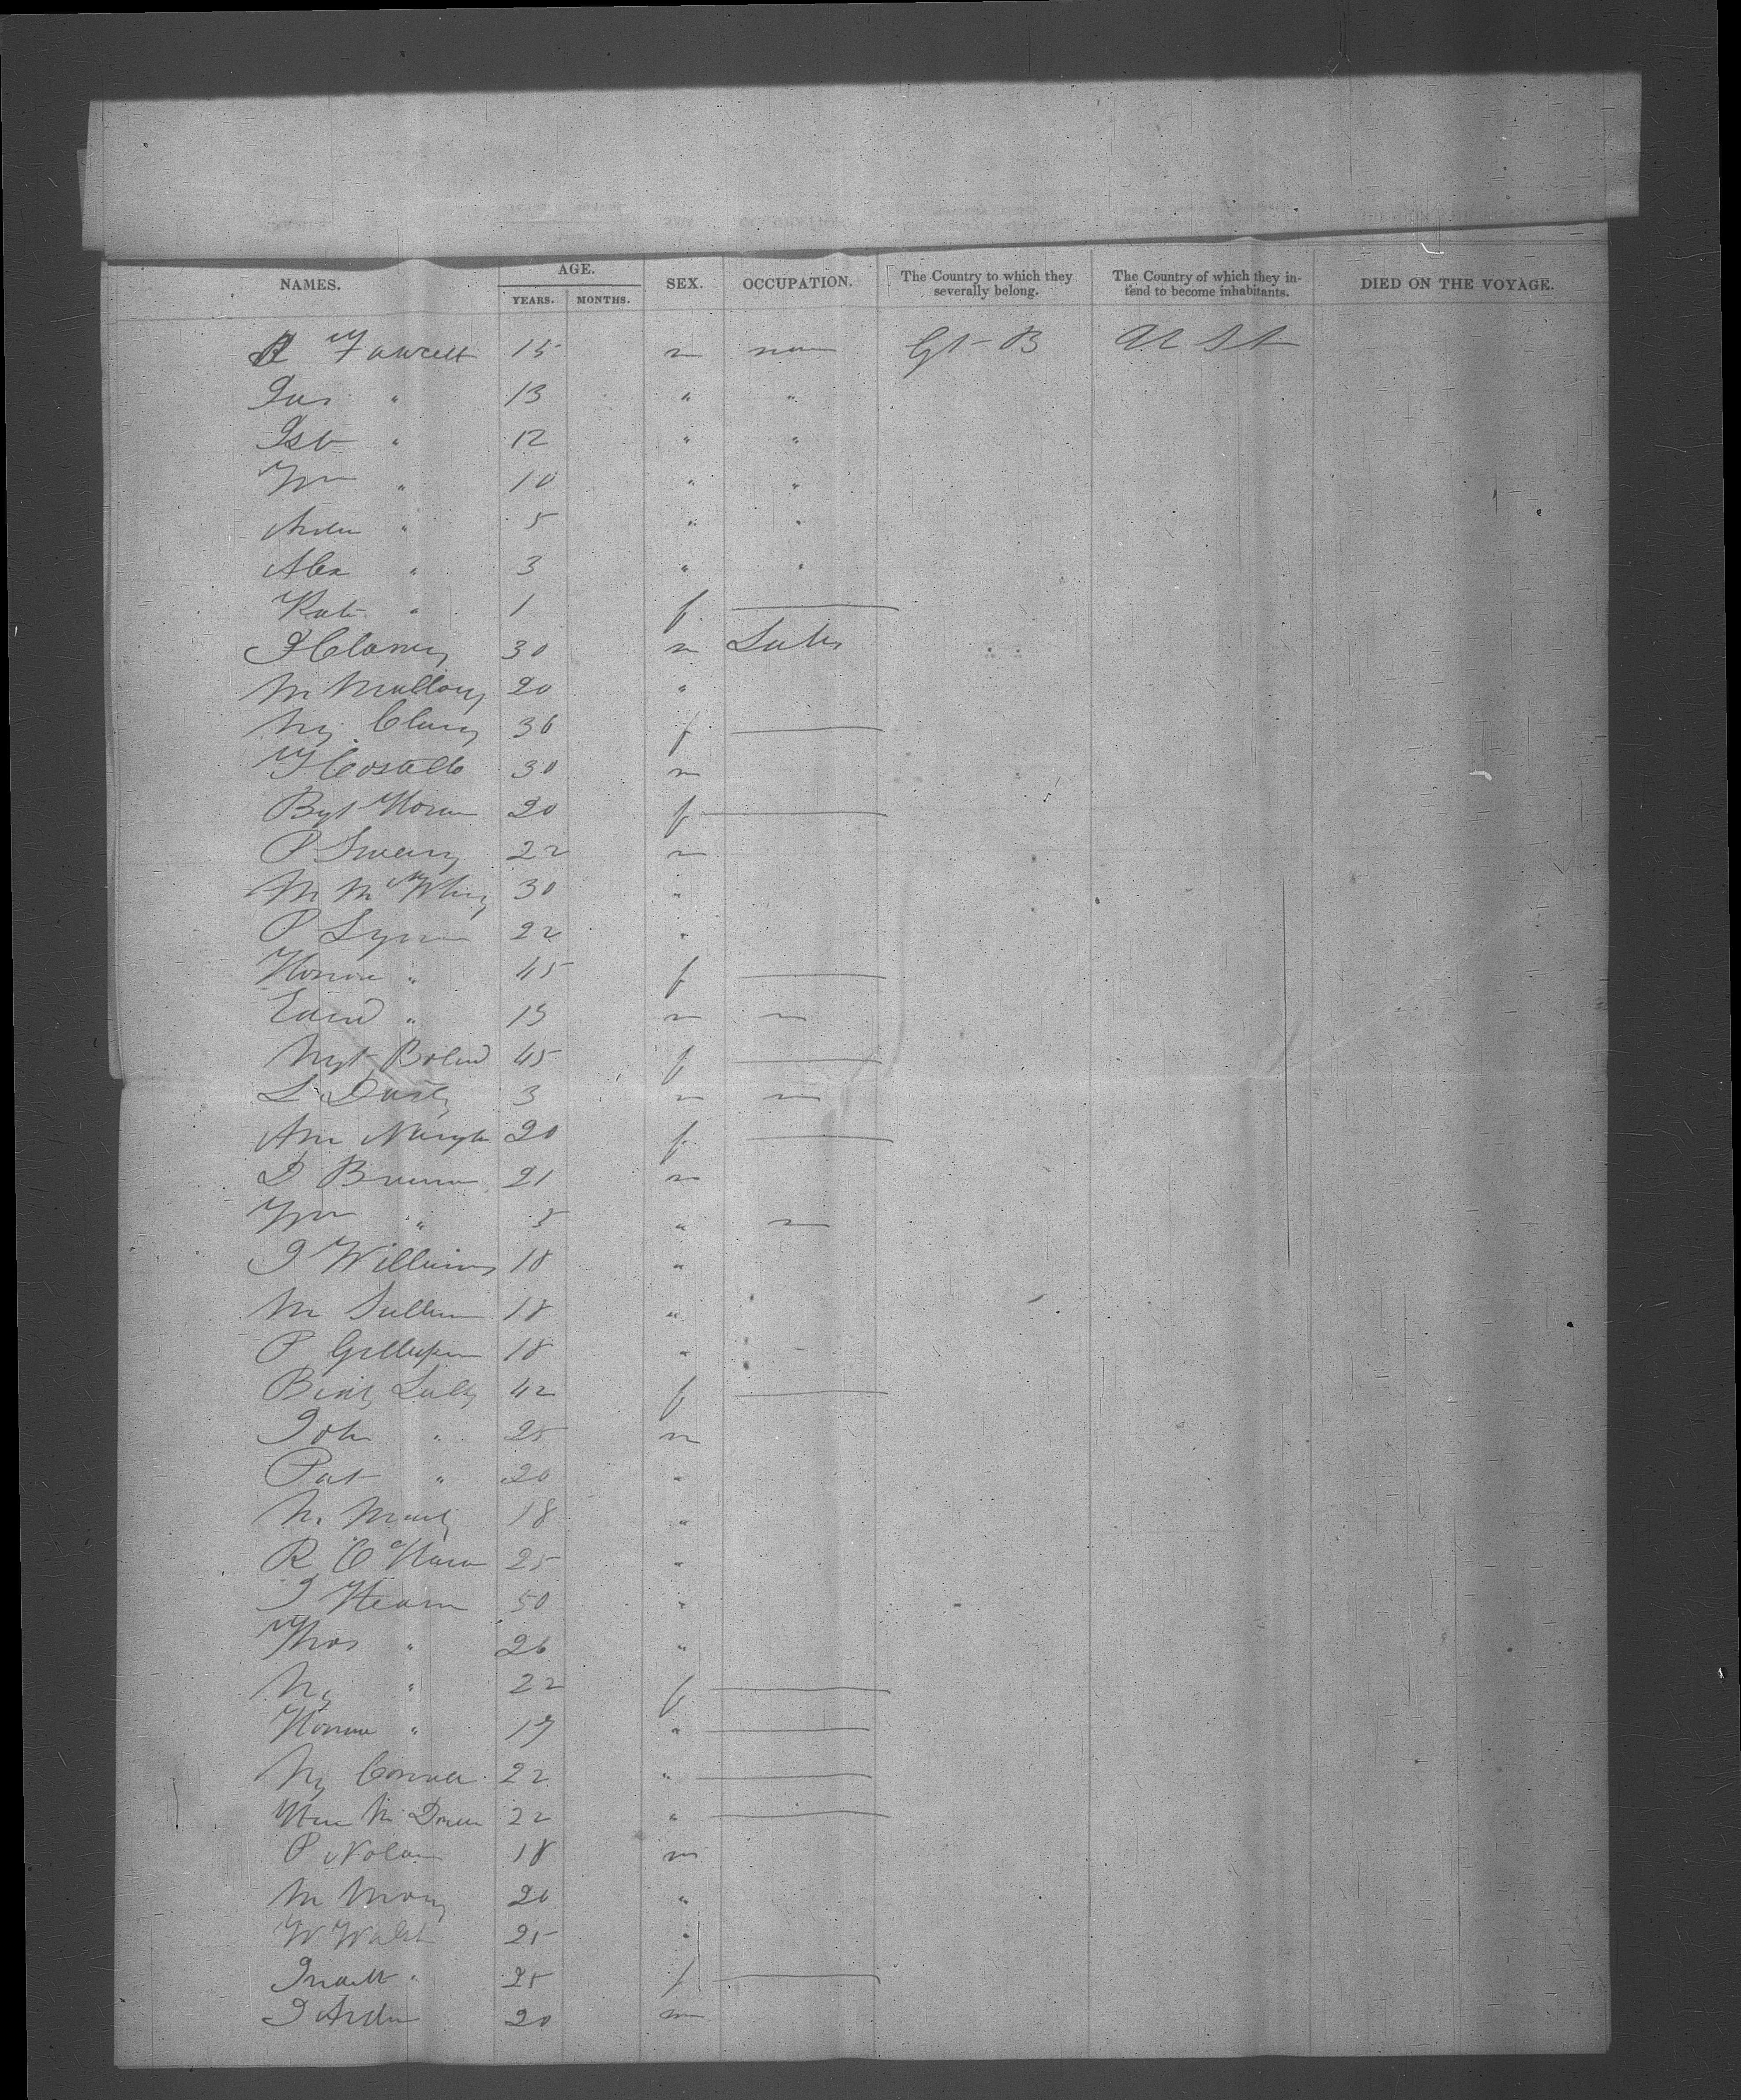 NAMES. AGE. YEARS. MONTHS. SEX. OCCUPATION. The Country to which they severally belong. The Country of which they intend to become inhabitants. DIED ON THE VOYAGE.
Fawcett 15 m non Gt B U St
Jas " 13 " "
Isb " 12 " "
Wm " 10 " "
Andw " 5 " "
Alex " 3 " "
Kate " 1 f
J Clancy 30 m Labr
M Mallory 20 "
My Clancy 36 f
T Costello 30 m
Bgt Horan 20 f
P Sweeny 22 m
M Mc 30 "
P Lyon 22 "
Honora " 45 f
Edwd " 15 m
Mgt Boland 45 f
L 3 m
Ann 20 f
D 21 m
Wm " 5 "
J Williams 18 "
M Sullivan 18 "
P Gillespie 18 "
Lally 42 f
John " 25 m
Pat " 20 "
M 18 "
R O'Hara 25 "
J Hearn 50 "
Thos " 26 "
My " 22 f
Honora " 17 "
My Connell 22 "
22 "
P Nolan 18 m
M 20 "
W Walsh 25 "
" 25 f
J 20 m